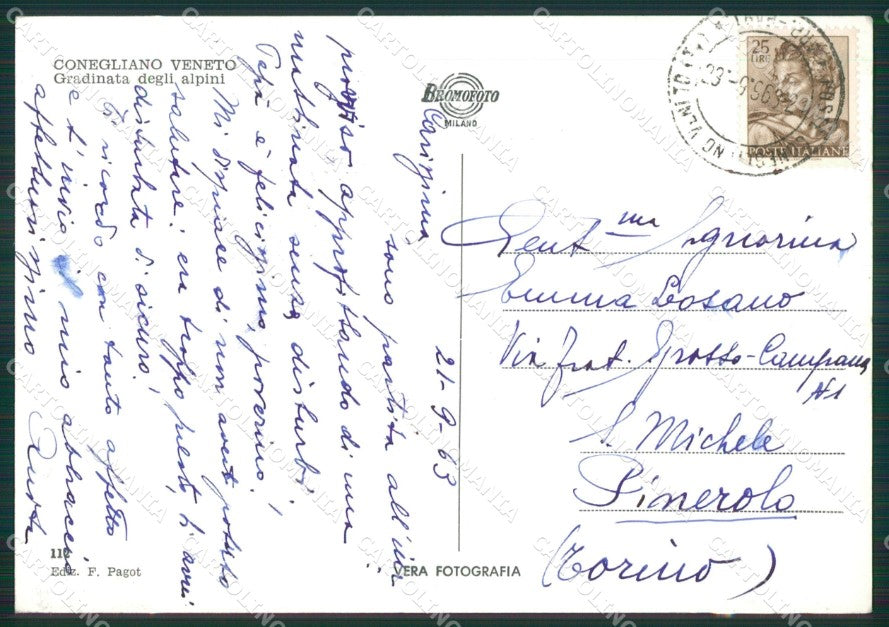 CONEGLIANO VENETO
Gradinata degli alpini
BROMOFOTO
MILANO
25
LIRE
POSTE ITALIANE
21-9-63
Carissima
sono partita all'im
provviso approfittando di una
mattinata senza disturbi!
Papà è felicissimo, poverino!
Mi dispiace di non averti potuto
salutare: era troppo presto, ti avrei
disturbata di sicuro!
Ti ricordo con tanto affetto
e t'invio il mio abbraccio
affettuosissimo
Gent.ma Signorina
Emma Losano
Via Frat. Grosso-Campana
N1
S. Michele
Pinerolo
(Torino)
112
Ediz. F. Pagot
VERA FOTOGRAFIA
CARTOLINOMANIA